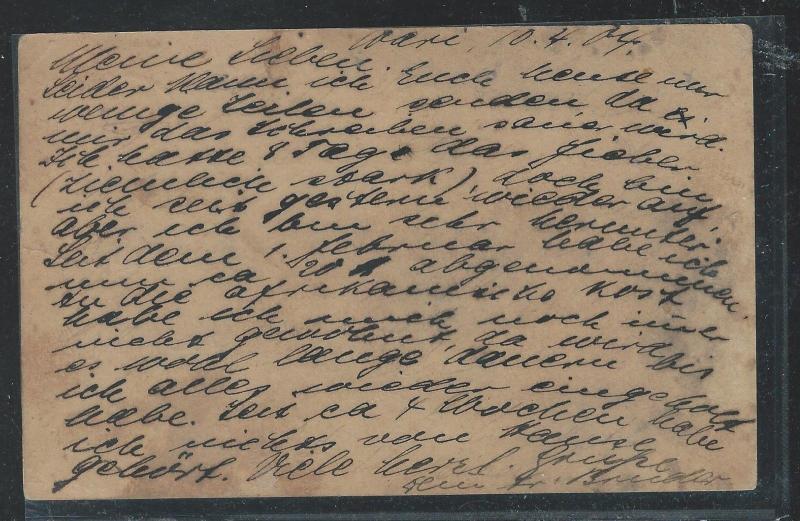 Wari, 10.4.04.
Meine Lieben
Leider kann ich Euch heute nur
wenige Zeilen senden da es
mir das Schreiben sauer wird.
Ich hatte 8 Tage das Fieber
(ziemlich stark), doch bin
ich seit gestern wieder auf,
aber ich bin sehr herunter.
Seit dem 1. Februar habe ich
nur ca 20 abgenommen.
An die afrikanische Kost
habe ich mich noch immer
nicht gewöhnt, da wird
es wohl lange dauern bis
ich alles wieder eingeholt
habe. Seit ca 4 Wochen habe
ich nichts von Hause
gehört. Viele herzl. Grüße
Bruder